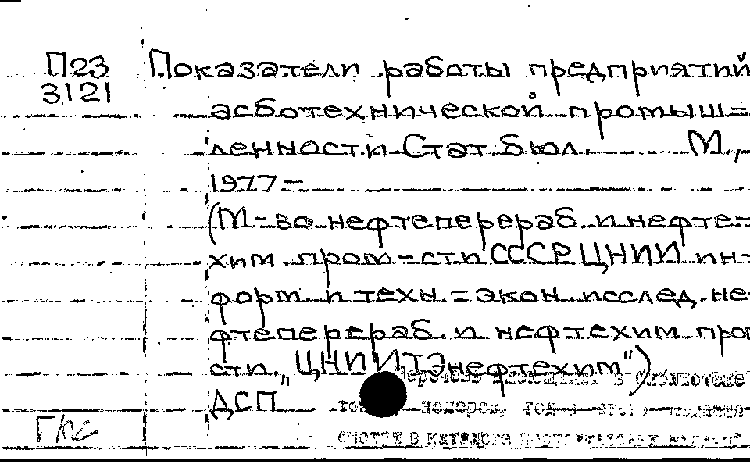 П23 Показатели работы предприятий
3121 асботехнической промыш=
ленности Стат. бюл. М.,
1977-
(М-во нефтеперераб. и нефте=
хим. пром-сти СССР. ЦНИИ ин-
форм. и техн.=экон. исслед. не-
фтеперераб. и нефтехим. про
сти. "ЦНИИТЭнефтехим")
ДСП в библиотеке
год
в каталоге